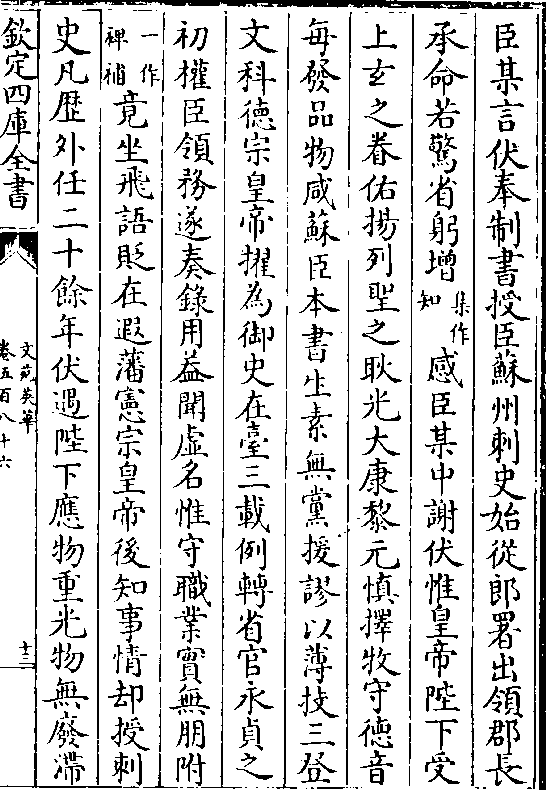 臣某言伏奉制書授臣蘇州刺史始從郎署出領郡長
承命若驚省躬增集作知感臣某中謝伏惟皇帝陛下受
上玄之眷佑揚列聖之耿光大康黎元慎擇牧守德音
每發品物咸蘇臣本書生素無黨援謬以薄技三登
文科德宗皇帝擢為御史在臺三載例轉省官永貞之
初權臣領務遂奏錄用益聞虛名惟守職業實無朋附
一作裨補竟坐飛語貶在遐藩憲宗皇帝後知事情却授刺
史凡歷外任二十餘年伏遇陛下應物重光物無廢滯
欽定四庫全書
文苑英華
卷五百八十六
十三